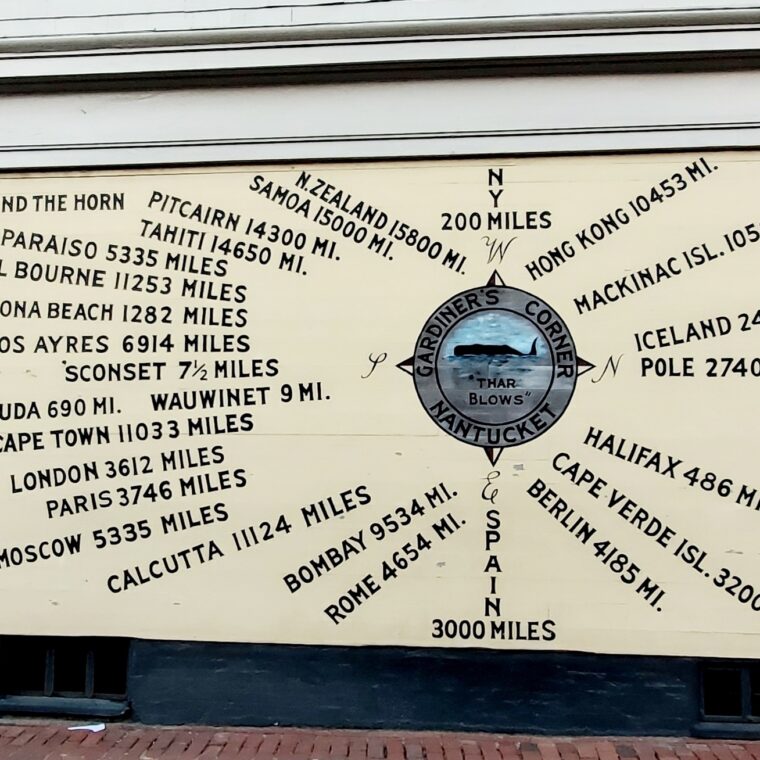 ND THE HORN
PARAISO 5335 MILES
L BOURNE 11253 MILES
ONA BEACH 1282 MILES
OS AYRES 6914 MILES
'SCONSET 7½ MILES
UDA 690 MI.
WAUWINET 9 MI.
CAPE TOWN 11033 MILES
LONDON 3612 MILES
PARIS 3746 MILES
MOSCOW 5335 MILES
CALCUTTA 11124 MILES
BOMBAY 9534 MI.
ROME 4654 MI.
PITCAIRN 14300 MI.
TAHITI 14650 MI.
SAMOA 15000 MI.
N.ZEALAND 15800 MI.
NY
200 MILES
W
S
GARDINER'S CORNER
"THAR
BLOWS"
NANTUCKET
N
E
SPAIN
3000 MILES
HONG KONG 10453 MI.
MACKINAC ISL. 105
ICELAND 24
POLE 2740
HALIFAX 486 MI
CAPE VERDE ISL. 3200
BERLIN 4185 MI.